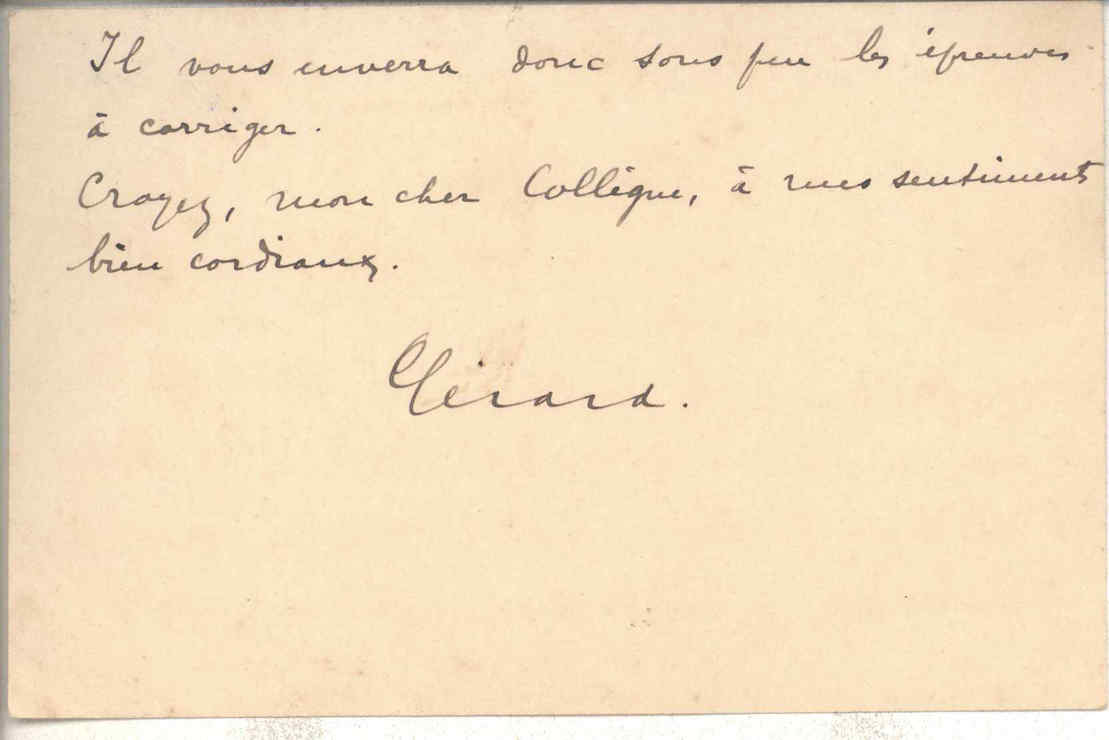 Il vous enverra donc sous peu les épreuves
à corriger.
Croyez, mon cher Collègue, à mes sentiments
bien cordiaux.
Gérard.